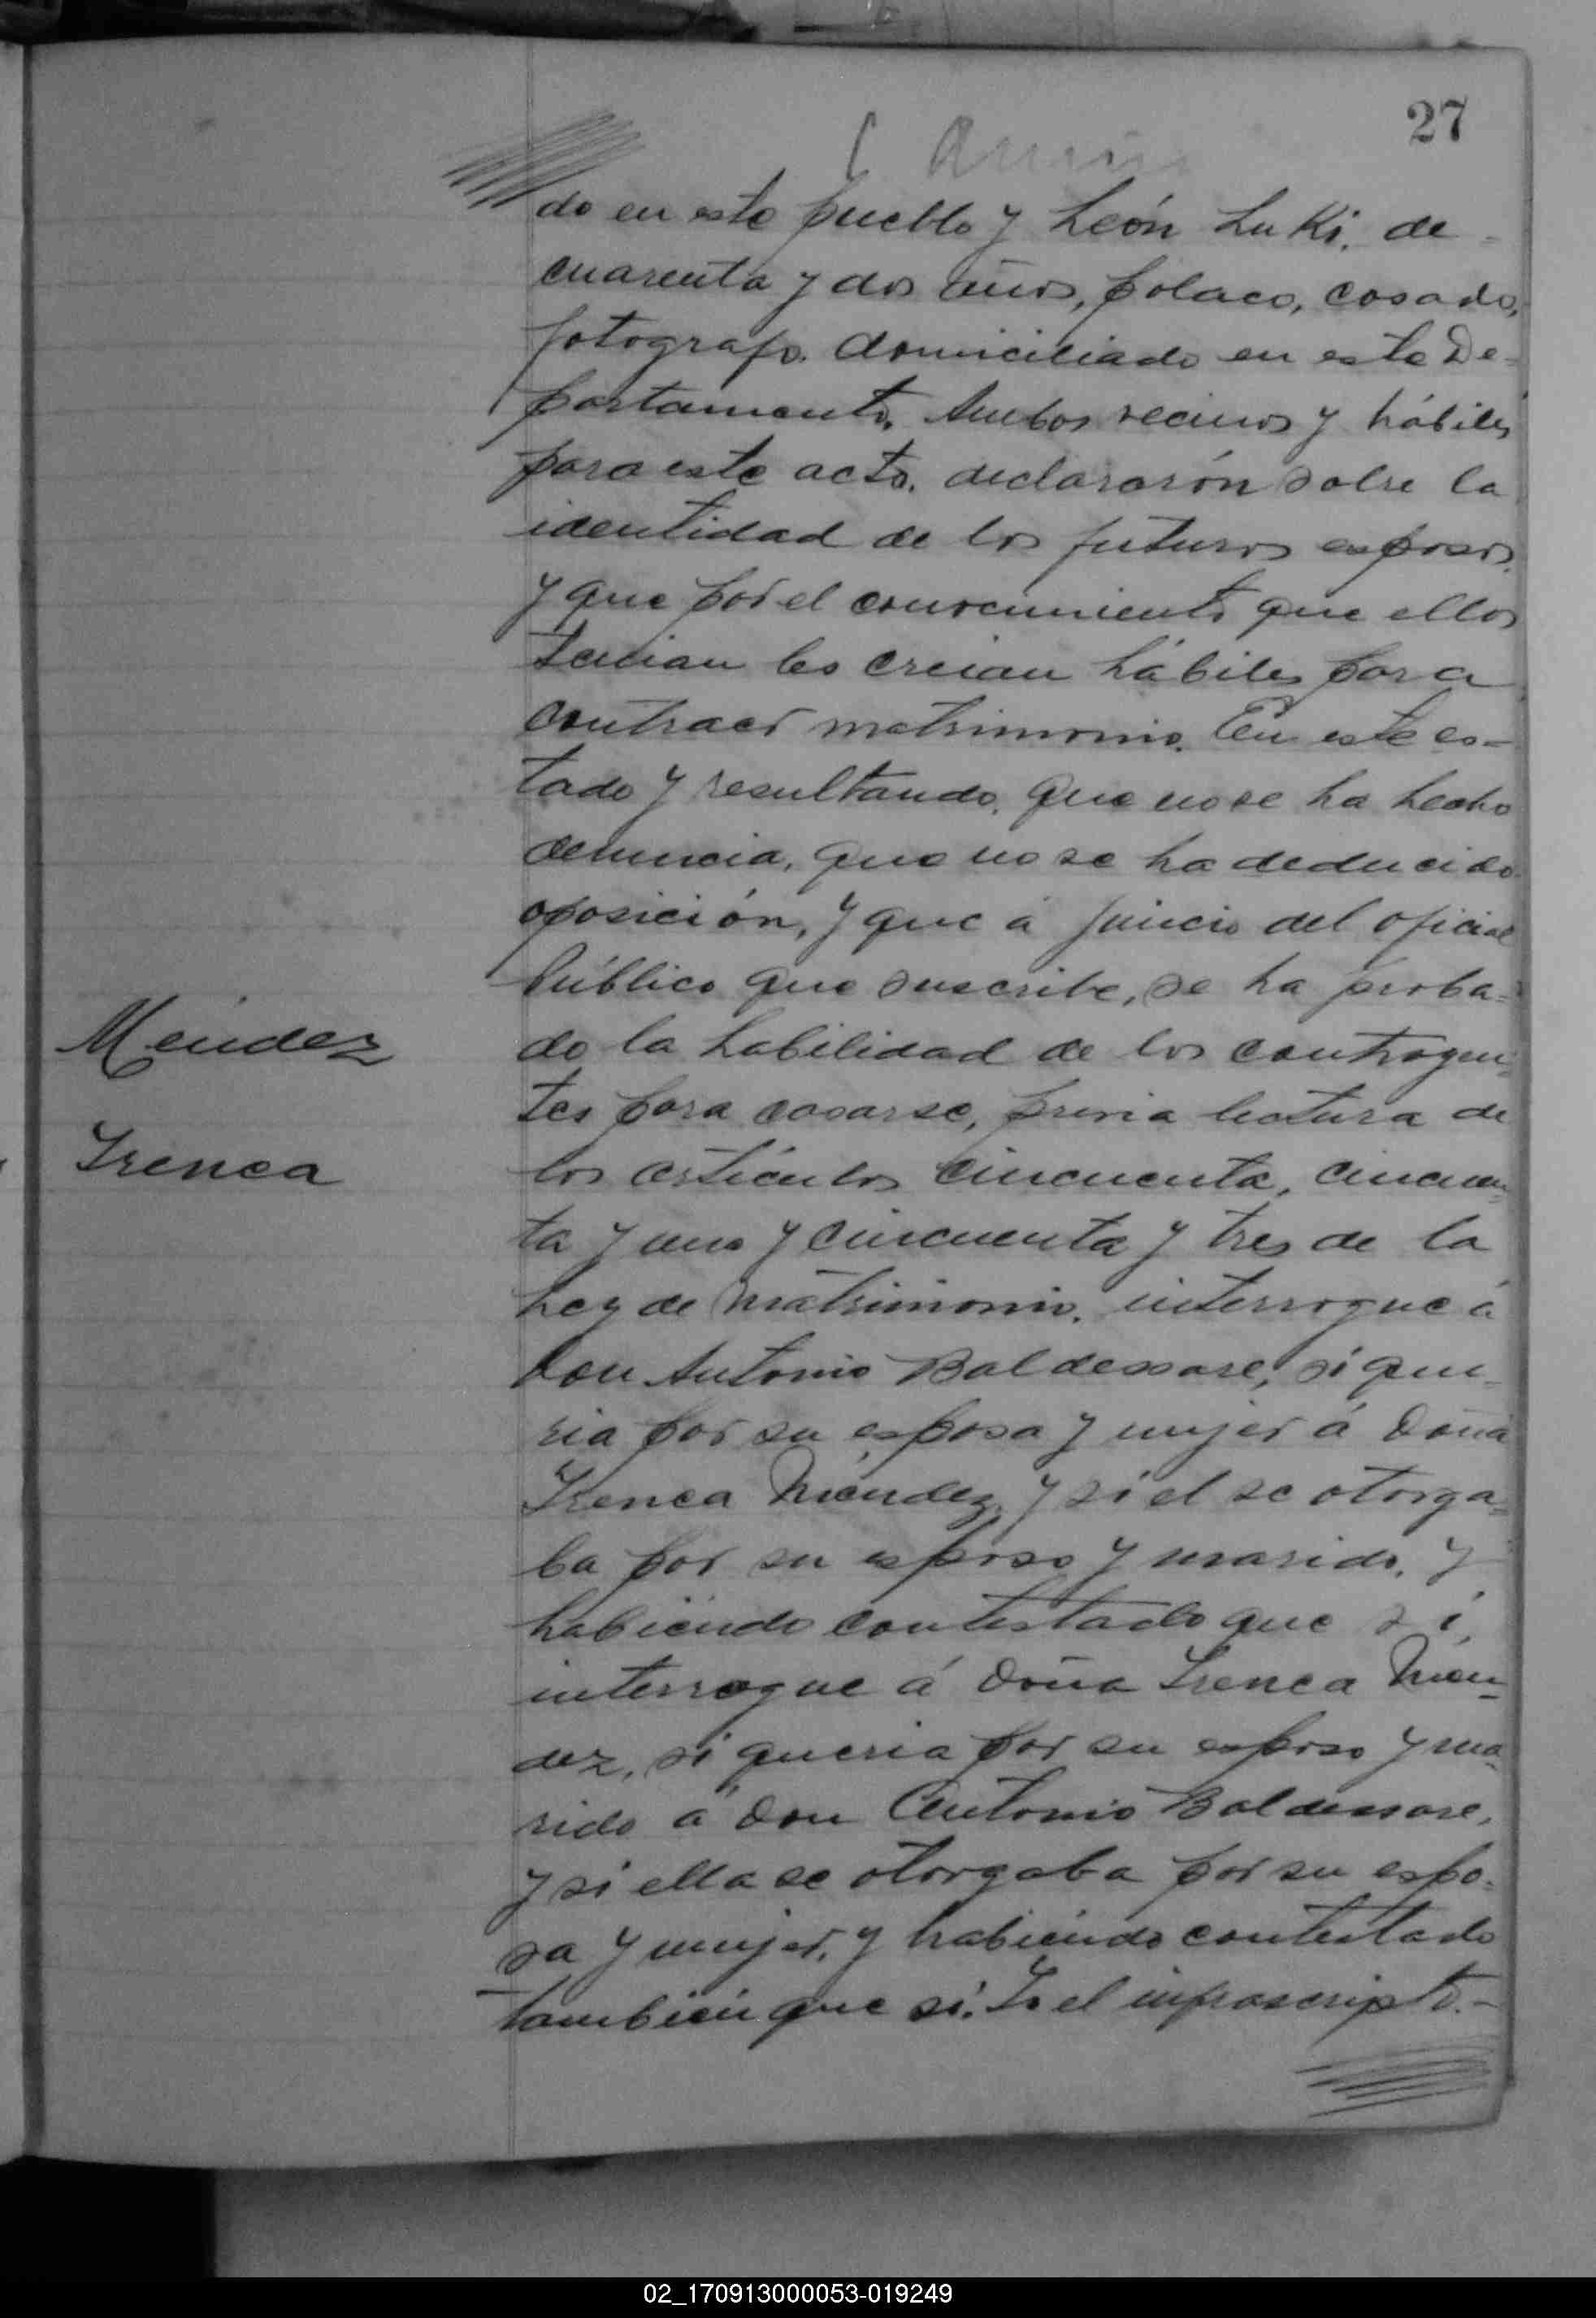 27
do en este pueblo y León Luki. de
cuarenta y dos años, polaco, casado,
fotografo. domiciliado en este De-
partamento. Ambos vecinos y hábiles
para este acto. declararón sobre la
identidad de los futuros esposos.
y que por el conocimiento que ellos
tenian les creian hábiles para
contraer matrimonio. En este es-
tado y resultando. que no se ha hecho
denuncia, que no se ha deducido
oposición, y que á juicio del oficial
Público que suscribe, se ha proba-
Méndez
do la habilidad de los contrayen-
tes para casarse, previa lectura de
Irenea
los artículos cincuenta, cincuen-
ta y uno y cincuenta y tres de la
Ley de Matrimonio. interrogue á
Don Antonio Baldessare, si que-
ria por su esposa y mujer á Doña
Irenea Méndez, y si el se otorga-
ba por su esposo y marido, y
habiéndo contestado que si,
interrogue á Doña Irenea Men-
dez, si queria por su esposo y ma-
rido a Don Antonio Baldessare,
y si ella se otorgaba por su espo-
sa y mujer, y habiéndo contestado
también que si. Yo el infrascripto.-
02_170913000053-019249